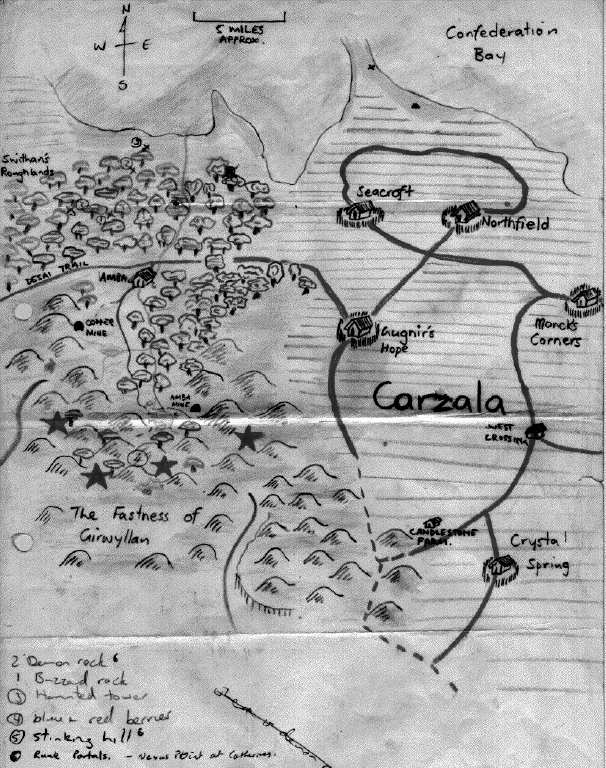 N
W E
S
5 MILES
APPROX.
Confederation
Bay
Swithan's
Roughlands
3
Seacroft
Northfield
DESAI TRAIL
AMBA
COPPER
MINE
Gugnir's
Hope
Marck's
Corners
AMBA
MINE
Carzala
WEST
CROSSING
4
The Fastness of
Girwyllan
CANDLESTONE
FARM.
Crystal
Spring
2 Demon rock
1 Buzzard rock
3 Haunted tower
4 blue + red berries
5 stinking hill
Rune Portals. - Nexus Point at